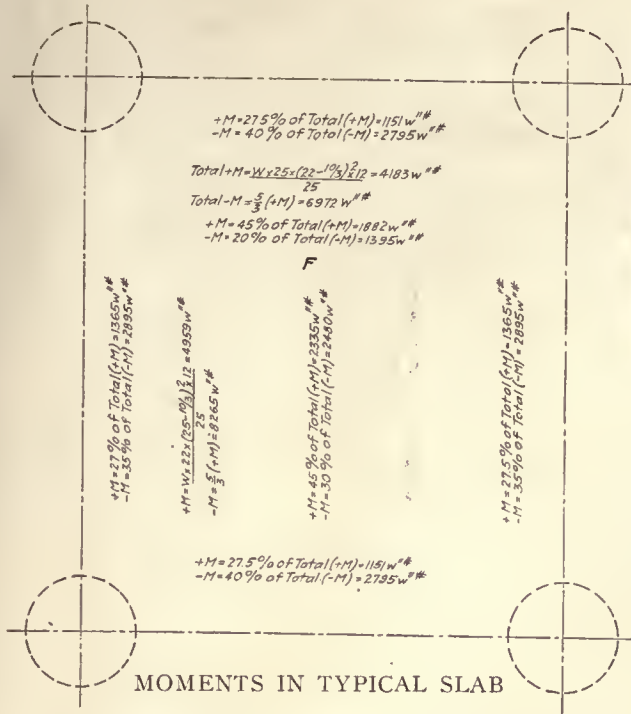 +M=27.5% of Total (+M)=1151w"#
-M=40% of Total (-M)=2795w"#
Total+M=Wx25x(22-10/3)²x12/25=4183w"#
Total-M=5/3(+M)=6972w"#
+M=45% of Total (+M)=1882w"#
-M=20% of Total (-M)=1395w"#
F
+M=27% of Total (+M)=1365w"#
-M=35% of Total (-M)=2895w"#
+M=Wx22x(25-10/3)²x12/25=4959w"#
-M=5/3(+M)=8265w"#
+M=45% of Total (+M)=2335w"#
-M=30% of Total (-M)=2480w"#
+M=27.5% of Total (+M)=1365w"#
-M=35% of Total (-M)=2895w"#
+M=27.5% of Total (+M)=1151w"#
-M=40% of Total (-M)=2795w"#
MOMENTS IN TYPICAL SLAB